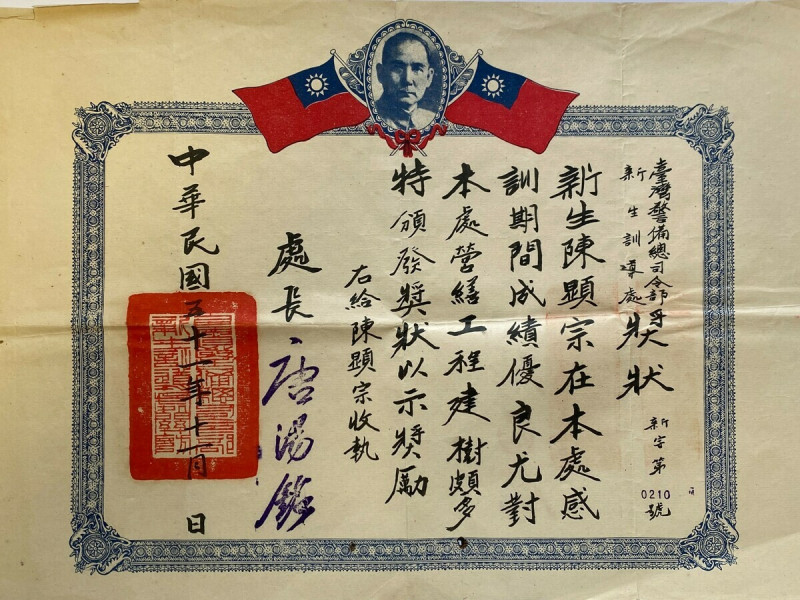 臺灣警備總司令部
新生訓導處
獎狀
新字第0210號
新生陳顯宗在本處感
訓期間成績優良尤對
本處營繕工程建樹頗多
特頒發獎狀以示獎勵
右給陳顯宗收執
處長 唐湯銘
中華民國五十一年十一月 日